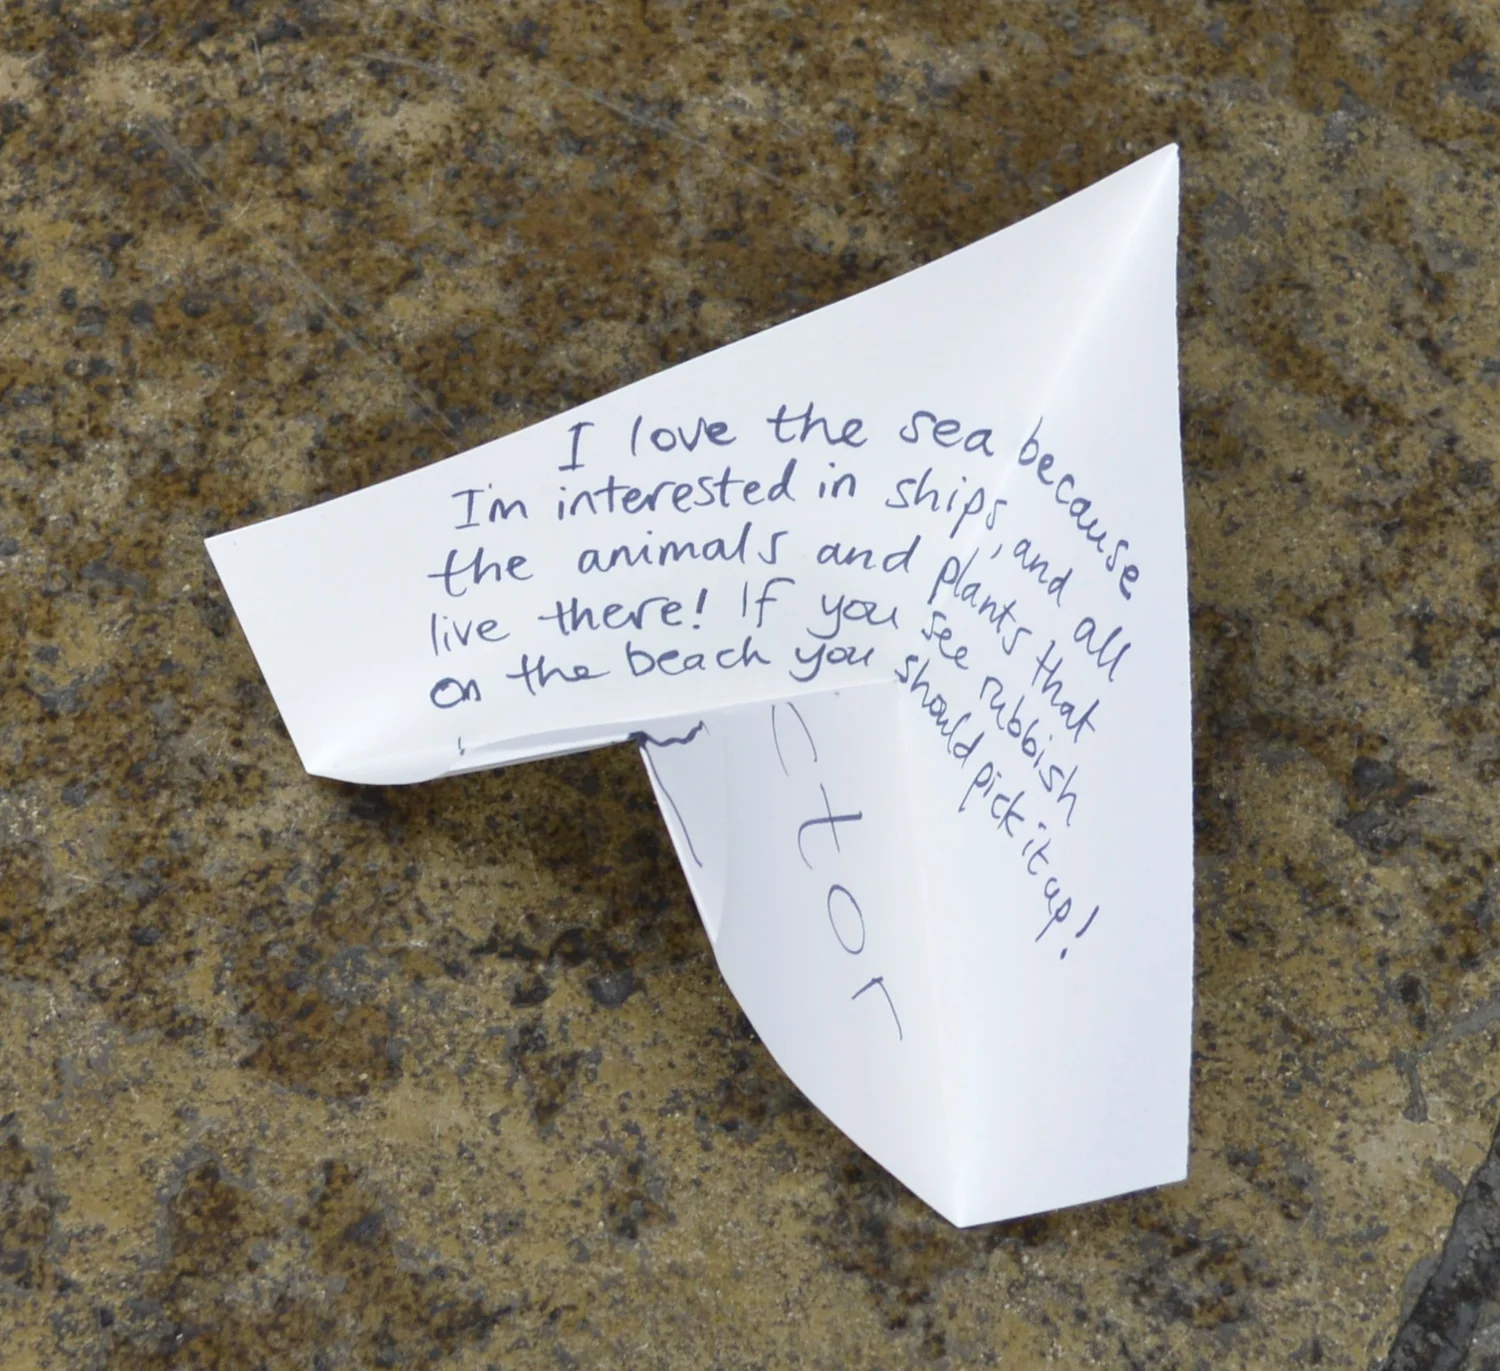 I love the sea because
I'm interested in ships, and all
the animals and plants that
live there! If you see rubbish
on the beach you should pick it up!
ctor